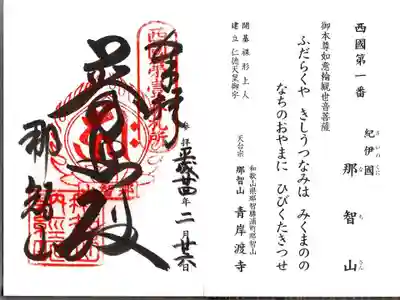 西國第一番
紀伊國 那智山
きいのくに なちさん
御本尊如意輪観世音菩薩
ふだらくや きしうつなみは みくまのの
なちのおやまに ひびくたきつせ
開基 裸形上人
建立 仁徳天皇御宇
天台宗
和歌山県那智勝浦町那智山
那智山 青岸渡寺
奉拝
参拝 平成廿四年 二月廿六日
普照殿
那智山